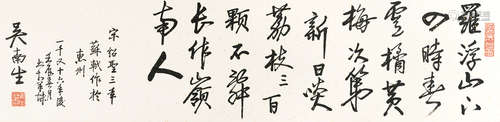 羅浮山下
四時春
盧橘黃
梅次第
新日啖
荔枝三百
顆不辭
長作嶺
南人
宋紹聖三年
蘇軾作於
惠州
吳南生